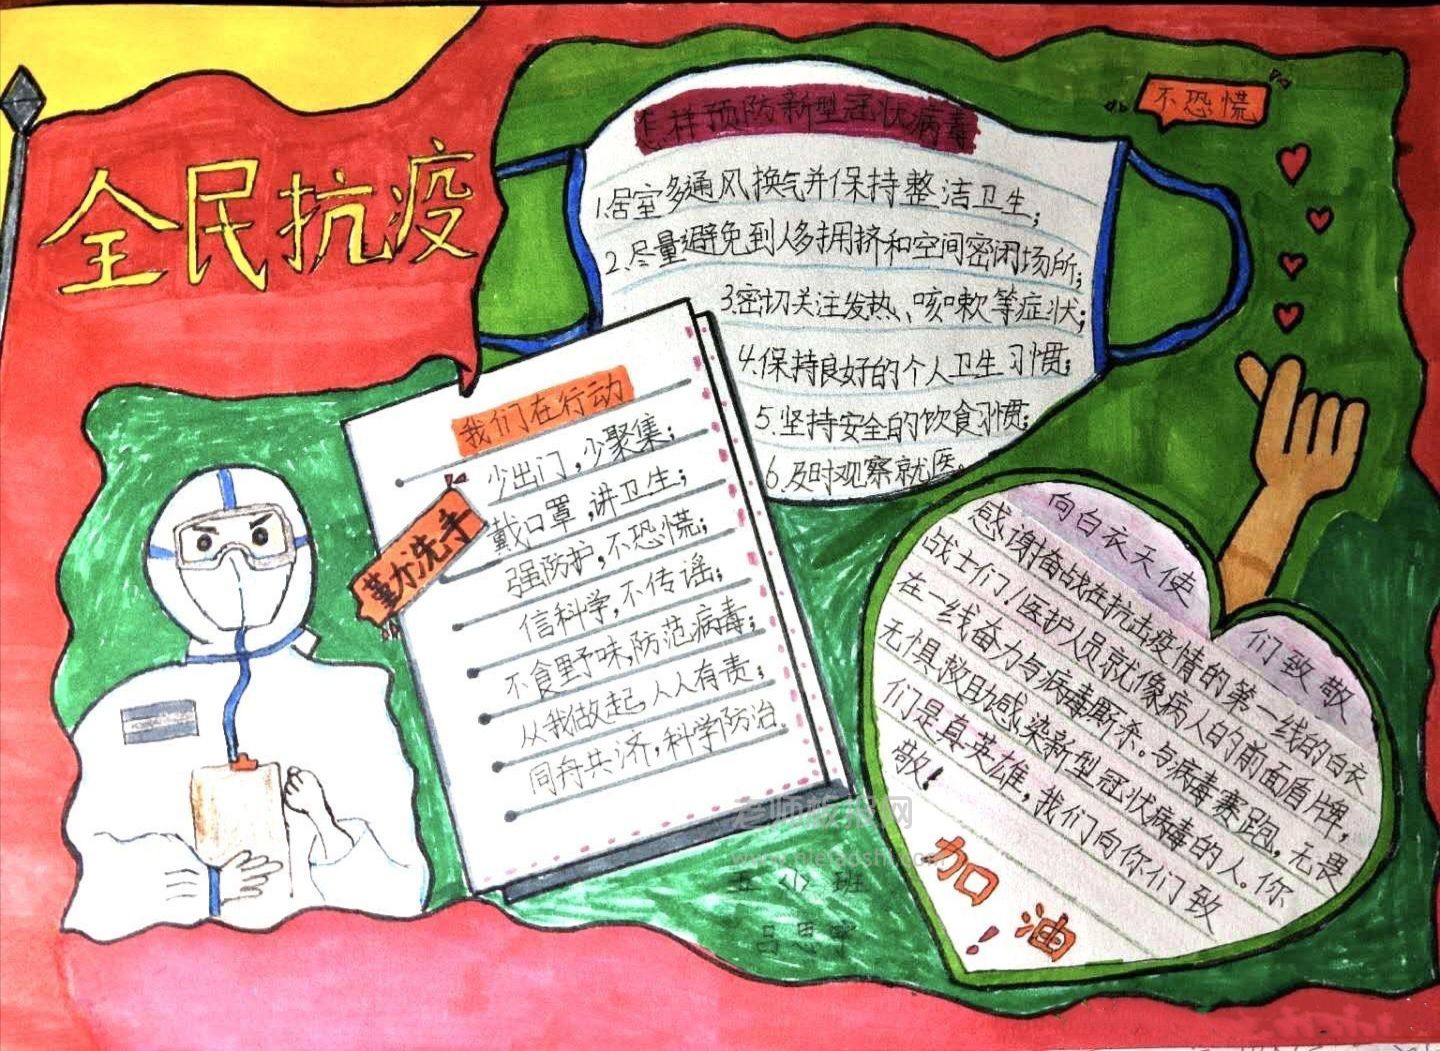 全民抗疫
怎样预防新型冠状病毒
1.居室多通风换气并保持整洁卫生；
2.尽量避免到人多拥挤和空间密闭场所；
3.密切关注发热、咳嗽等症状；
4.保持良好的个人卫生习惯；
5.坚持安全的饮食习惯；
6.及时观察就医。
不恐慌
我们在行动
少出门，少聚集；
戴口罩，讲卫生；
强防护，不恐慌；
信科学，不传谣；
不食野味，防范病毒；
从我做起，人人有责；
同舟共济，科学防治。
勤洗手
向白衣天使
们致敬
感谢奋战在抗击疫情的第一线的白衣
战士们！医护人员就像病人的前面盾牌，
在一线奋力与病毒厮杀。与病毒赛跑，无畏
无惧救助感染新型冠状病毒的人。你
们是真英雄，我们向你们致
敬！
加油！
老师板报网
五〈1〉班
吕思